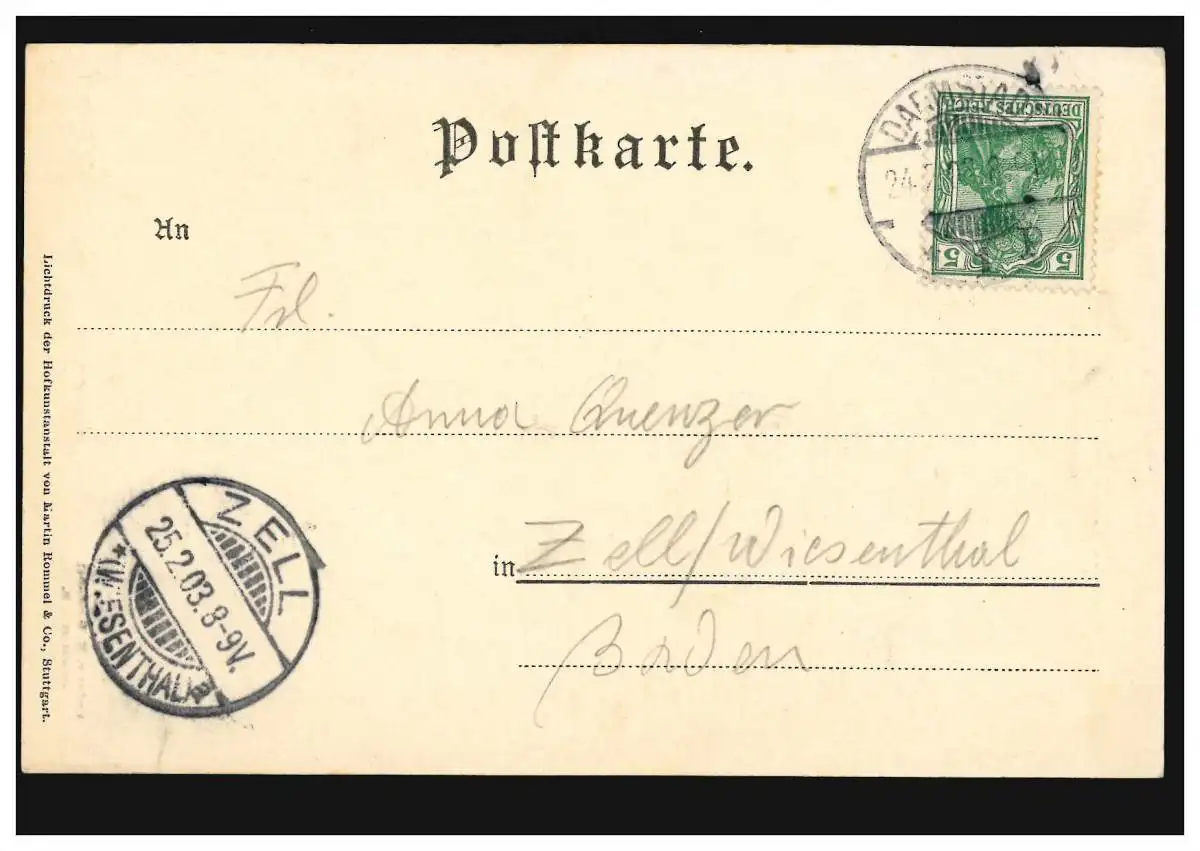 Postkarte.
DEUTSCHES REICH
5 5
DARMSTADT
24.2.03.8
An
Frl.
Anna Quenzer
in Zell/Wiesenthal
Baden
ZELL
25.2.03.8-9V.
* (WIESENTHAL) a
Lichtdruck der Hofkunstanstalt von Martin Rommel & Co., Stuttgart.